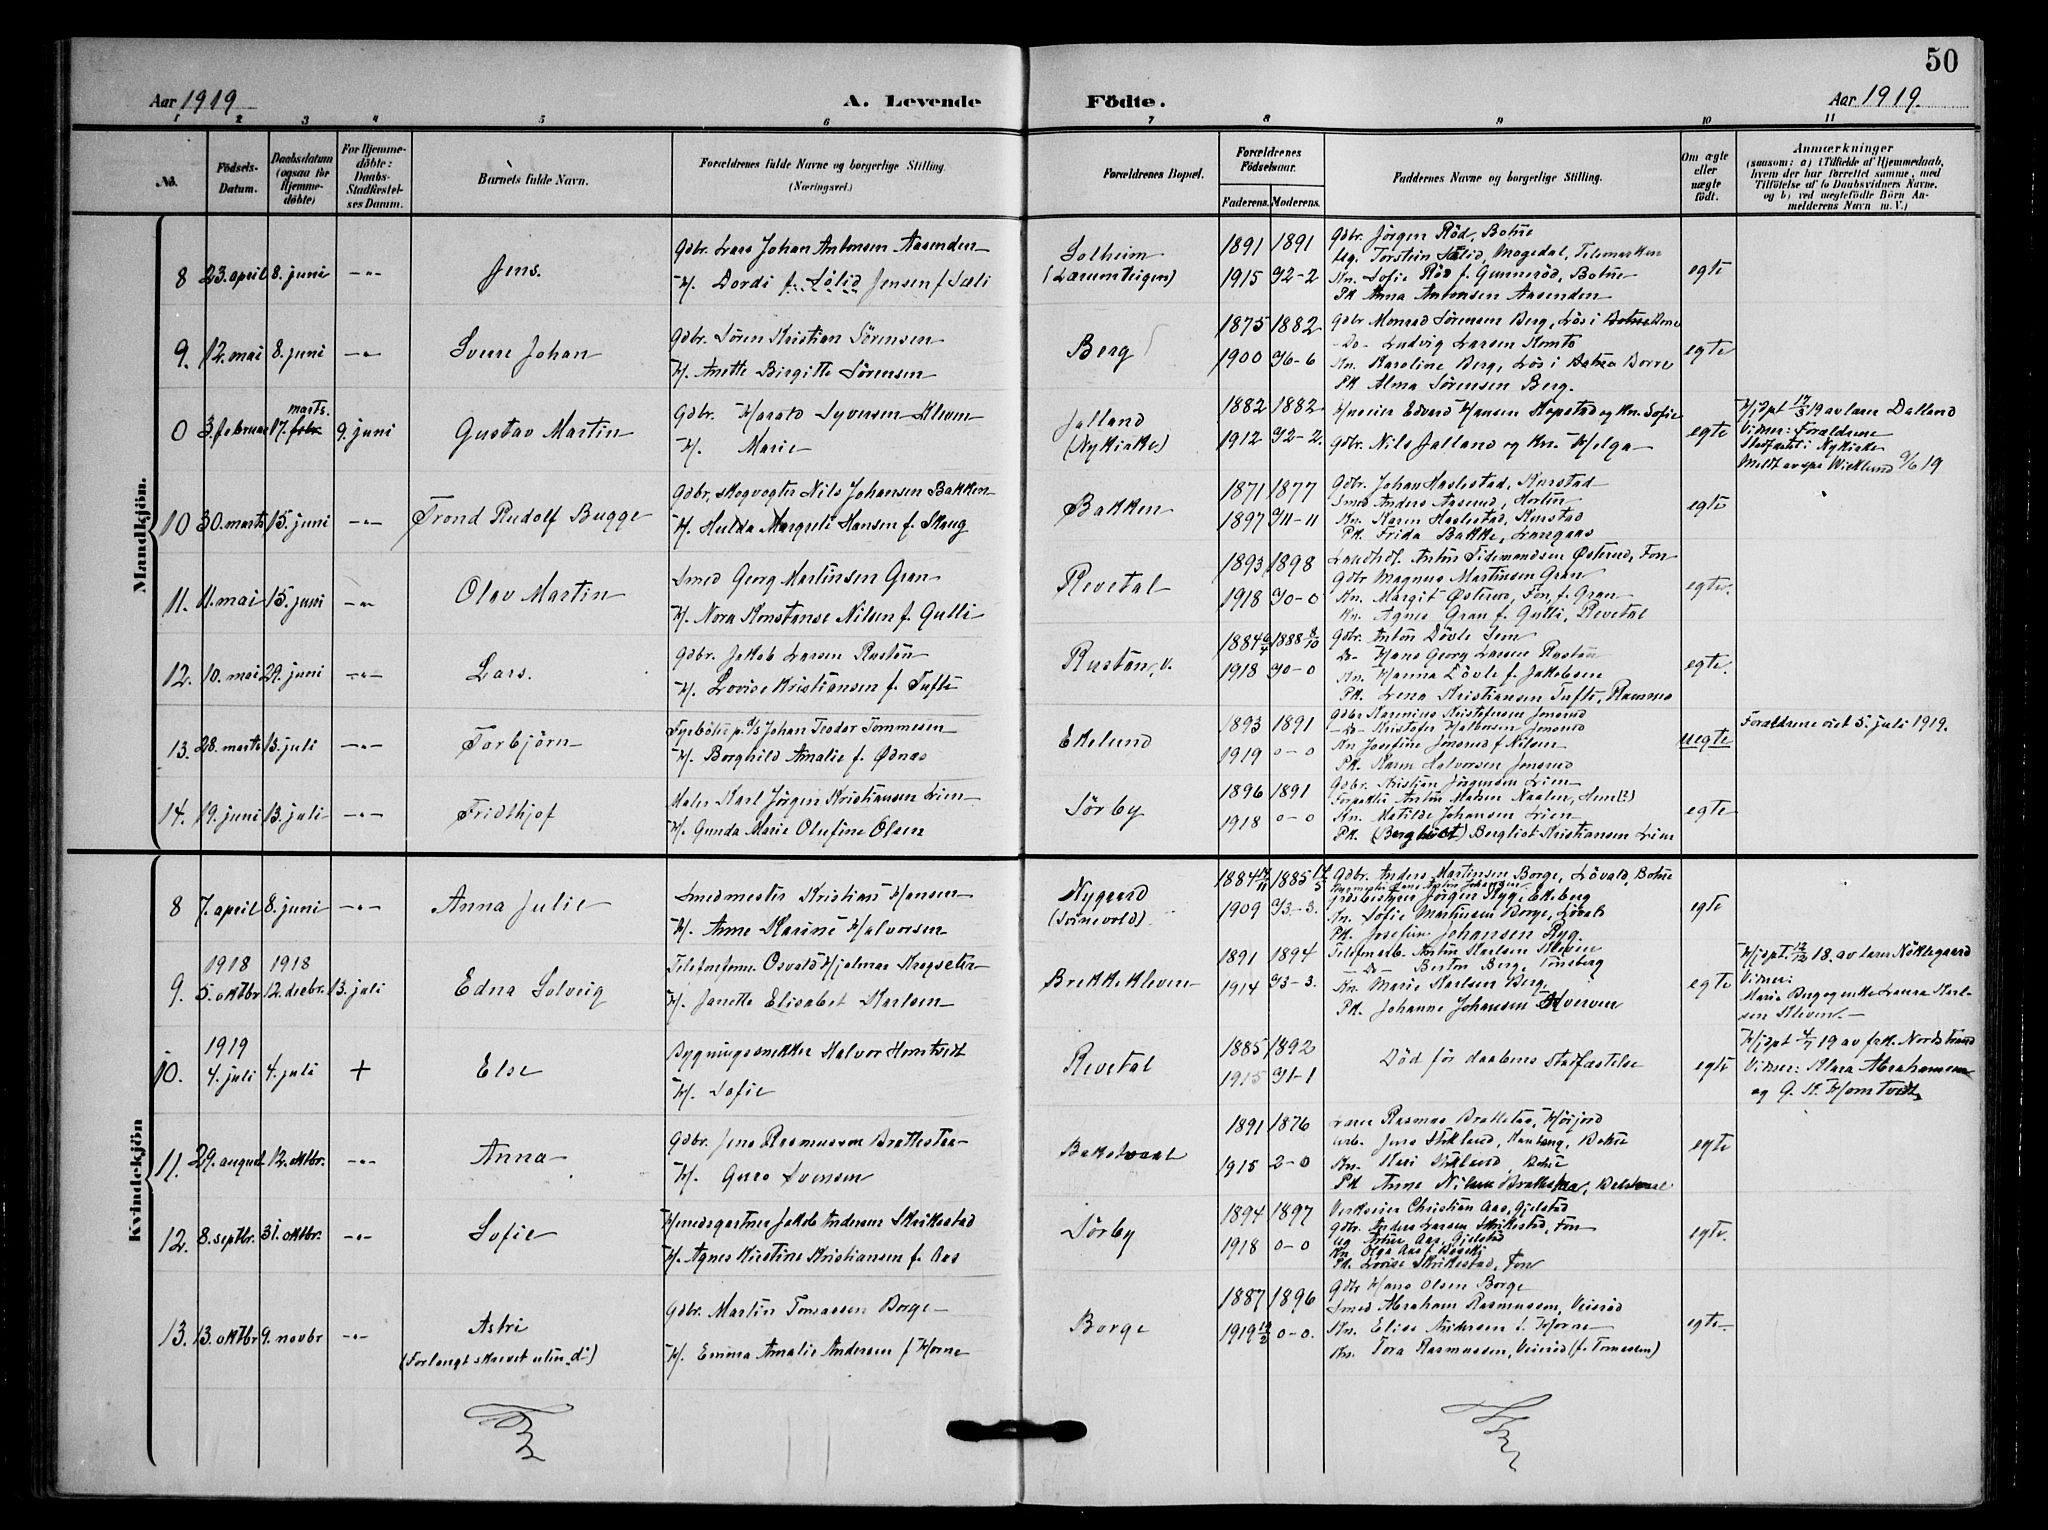 50
Aar 1919
A. Levende
Födte.
Aar 1919.
1 2 3 4 5 6 7 8 9 10 11
No.
Födsels-
Datum.
Daabsdatum
(ogsaa for
Hjemme-
döbte)
For Hjemme-
döbte:
Daabs-
Stadfæstel-
ses Datum.
Barnets fulde Navn.
Forældrenes fulde Navne og borgerlige Stilling.
(Næringsvei.)
Forældrenes Bopæl.
Forældrenes
Födselsaar.
Faderens. Moderens.
Faddernes Navne og borgerlige Stilling.
Om ægte
eller
uægte
födt.
Anmærkninger
(saasom: a) i Tilfælde af Hjemmedaab,
hvem der har forrettet samme, med
Tilföielse af to Daabsvidners Navne.
og b) ved uegtefödte Börn An-
melderens Navn m. V.)
Mandkjön.
8 23. april 8. juni -"- Jens.
Gdbr. Lars Johan Antonsen Aasenden
H. Dordi f. Sølid Jensen f. Sæli
Solheim
(Lærumteigen)
1891 1891
1915 2-2
Gdbr. Jörgen Röd, Botne
Ug. Torstein Sælid, Mogedal, Telemarken
Kn. Sofie Röd f. Gunneröd, Botne
Pk Anna Antonsen Aasenden
egte
9. 12. mai 8. juni -"- Sverre Johan
Gdbr. Sören Kristian Sörensen
H. Anette Birgitte Sørensen
Berg
1875 1882
1900 6-6
Gdbr Monrad Sørensen Berg, Lös i Botne Borre
-Do- Ludvig Larsen Komto
Kn. Karoline Berg, Lös i Botne Borre
Pk Alma Sørensen Berg.
egte
0 3. februar 17. febr. marts. 9. juni Gustav Martin
Gdbr. Harald Syversen Kleven
H. Marie
Jalland
(Nykirke)
1882 1882
1912 2-2.
Huseier Edvard Hansen Kopstad og Kn. Sofie
Gdbr. Nils Jalland og Kn. Helga
egte
Hjdpt 17/3 19 av lærer Dalland
Vidner: Forældrene
Stadfæstet i Nykirke
Meldt av spr Wicklund 9/6 19
10 30. marts 15. juni -"- Trond Rudolf Bugge
Gdbr, skogvogter Nils Johansen Bakken
H. Hulda Marguli Hansen f. Skaug
Bakken
1871 1877
1897 11-11
Gdbr. Johan Haslestad, Kurstad
Smed Anders Aaserud, Horten
Kn. Karen Haslestad, Kurstad
Pk. Frida Bakke, Langaas
egte
11. 11. mai 15. juni -"- Olav Martin
Smed Georg Martinsen Gran
H. Nora Konstanse Nilsen f. Gulli
Revetal
1893 1898
1918 0-0
Landhdl. Anton Tidemandsen Østerud, Fon
Gdbr Magnus Martinsen Gran
Kn. Margit Østerud, Fon, f. Gran
Kn. Agnes Gran f. Gulli, Revetal
egte.
12. 10. mai 29. juni -"- Lars.
Gdbr. Jakob Larsen Rustan
H. Lovise Kristiansen f. Tufte
Rustan, v.
1884 6/4 1888 8/10
1918 0-0
Gdbr. Anton Dövle Sem
Do- Hans Georg Larsen Rustan
Kn. Hanna Dövle f. Jakobsen
Pk. Lena Kristiansen Tufte, Ramnes
egte.
13. 28. marts 13. juli -"- Torbjörn
Fyrböter p. Johan Teodor Tommesen
H. Borghild Amalie f. Ødnas
Ekelund
1893 1891
1919 0-0
Gdbr Marenius Kristofersen Jonsrud
-Do- Kristofer Halvorsen Jonsrud
Kn Josefine Jonsrud f. Nilsen
Pk. Karen Halvorsen Jonsrud
uegte
Forældrene viet 5. juli 1919.
14. 19. juni 13. juli -"- Fridthjof
Maler Karl Jörgen Kristiansen Lien
H. Gunda Marie Olufine Olsen
Sörby
1896 1891
1918 0-0
Gdbr. Kristian Jörgensen Lien
Forpakter Anton Matsen Naalen, Hem(?)
Kn. Matilde Johansen Lien
Pk. (Berghiot) Bergliot Kristiansen Lien
egte
Kvindekjön
8 7. april 8. juni -"- Anna Julie
Smedmester Kristian Hansen
H. Anne Karine Halvorsen
Nygaard
(Svinevold)
1884 1885
1909 3-3.
Gdbr. Anders Martinsen Borge, Lövald, Botne
Gdsbestyrer Jörgen Ryg, Ekeberg
Kn. Sofie Martinsen Borge, Lövald
Pk. Josefine Johansen Ryg
egte
9. 1918 5. oktbr 1918 12. decbr. 13. juli Edna Solveig
Telefonform. Osvald Hjalmar Kragseter
H. Janette Elisabet Karlsen
Brekke, Kleven
1891 1894
1914 3-3.
Telefonarb. Anton Karlsen Kleven
-Do- Berton Berg, Tönsberg
Kn. Marie Karlsen Berg
Pk. Johanne Johansen Kverven
egte
Hjdpt. 12/12 18. av lærer Nöklegaard
Vidner:
Marie Berg og enke Laura Karl-
sen Kleven.-
10. 1919 4. juli 4. juli + Else
Bygningssnekker Halvor Homtvedt
H. Sofie
Revetal
1885 1892
1915 1-1
Död för daabens stadfæstelse
egte
Hjdpt 4/7 19 av frk. Nordstrand
Vidner: Klara Abrahamsen
og G. K. Homtvedt
11. 29. august 12. oktbr. -"- Anna
Gdbr. Jens Rasmussen Brattestaa
H. Guro Svensen
Bakstvaal
1891 1876
1915 2-0
Lærer Rasmus Brattestaa, Hösjord
Arb. Jens Stiklund, Botne
Kn. Kari Stiklund, Botne
Pk Anne Nilsen Brattestaa
egte
12. 8. septbr. 31. oktbr. -"- Sofie
Herredsgartner Jakob Andersen Skrikestad
H. Agnes Kirstine Kristiansen f. Aas
Sörby
1894 1897
1918 0-0
Verkseier Christian Aas, Gjelstad
Gdbr. Anders Larsen Skrikestad, Fon
Ug Artur Aas, Gjelstad
Kn Olga Aas f. Bogskj
Pk. Lovise Skrikestad, Fon
egte.
13. 13. oktbr 9. novbr -"- Astri
(Forlangt skrevet uten „d“)
Gdbr. Martin Tomassen Borge
H. Emma Amalie Andersen f. Horne
Borge
1887 1896
1919 12/2 0-0.
Gdbr Hans Olsen Borge
Smed Abraham Rasmussen, Veieröd
Kn. Elise Andersen f. Horne
Kn. Tora Rasmussen, Veieröd (f. Tomessen)
egte